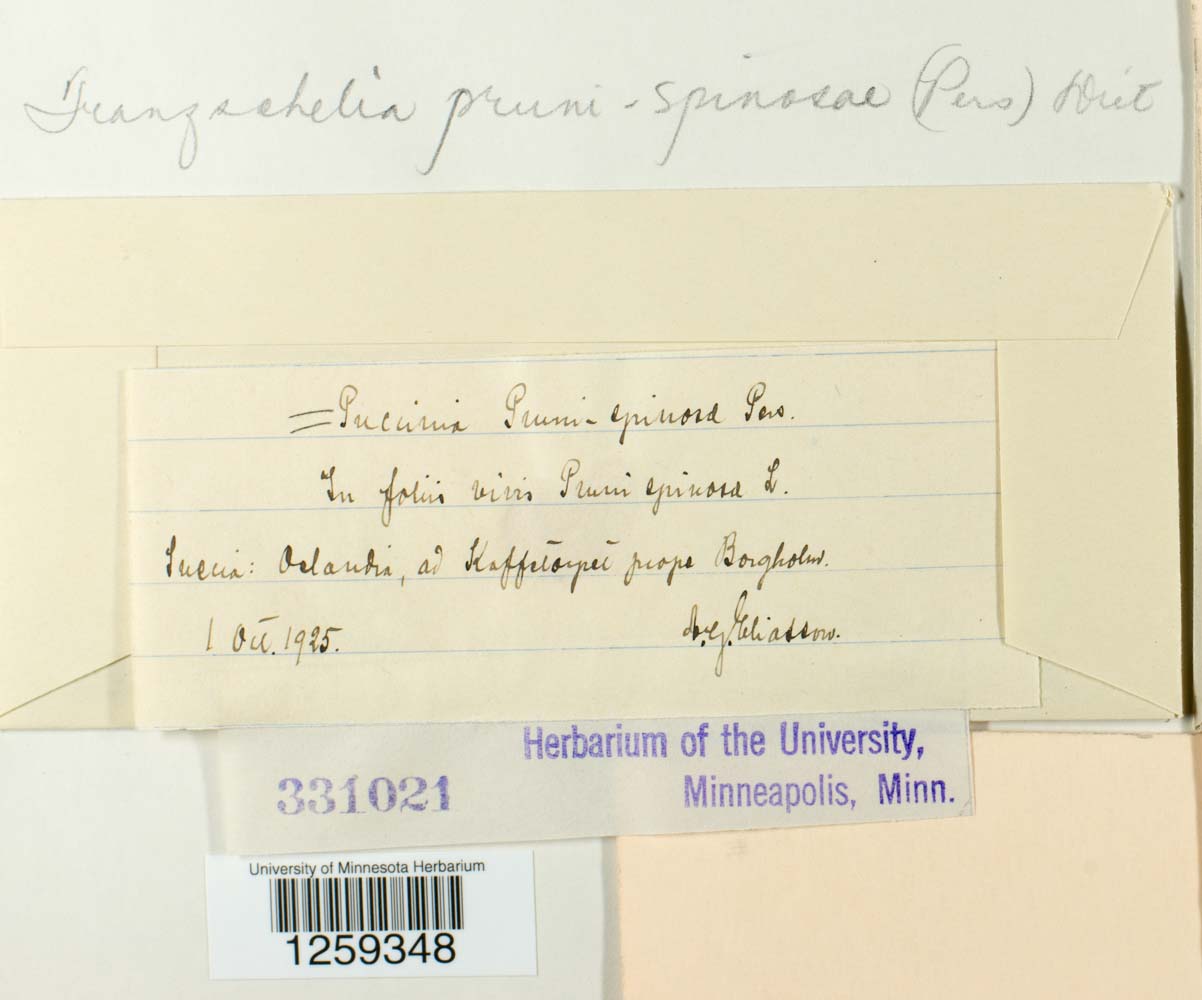 Tranzschelia pruni-spinosae (Pers) Diet
=Puccinia Pruni-spinosæ Pers.
In foliis vivis Pruni spinosæ L.
Suecia: Oelandia, ad Kaffetorpet prope Borgholm.
1 Oct. 1925. A.G. Eliasson.
Herbarium of the University,
331021 Minneapolis, Minn.
University of Minnesota Herbarium
1259348